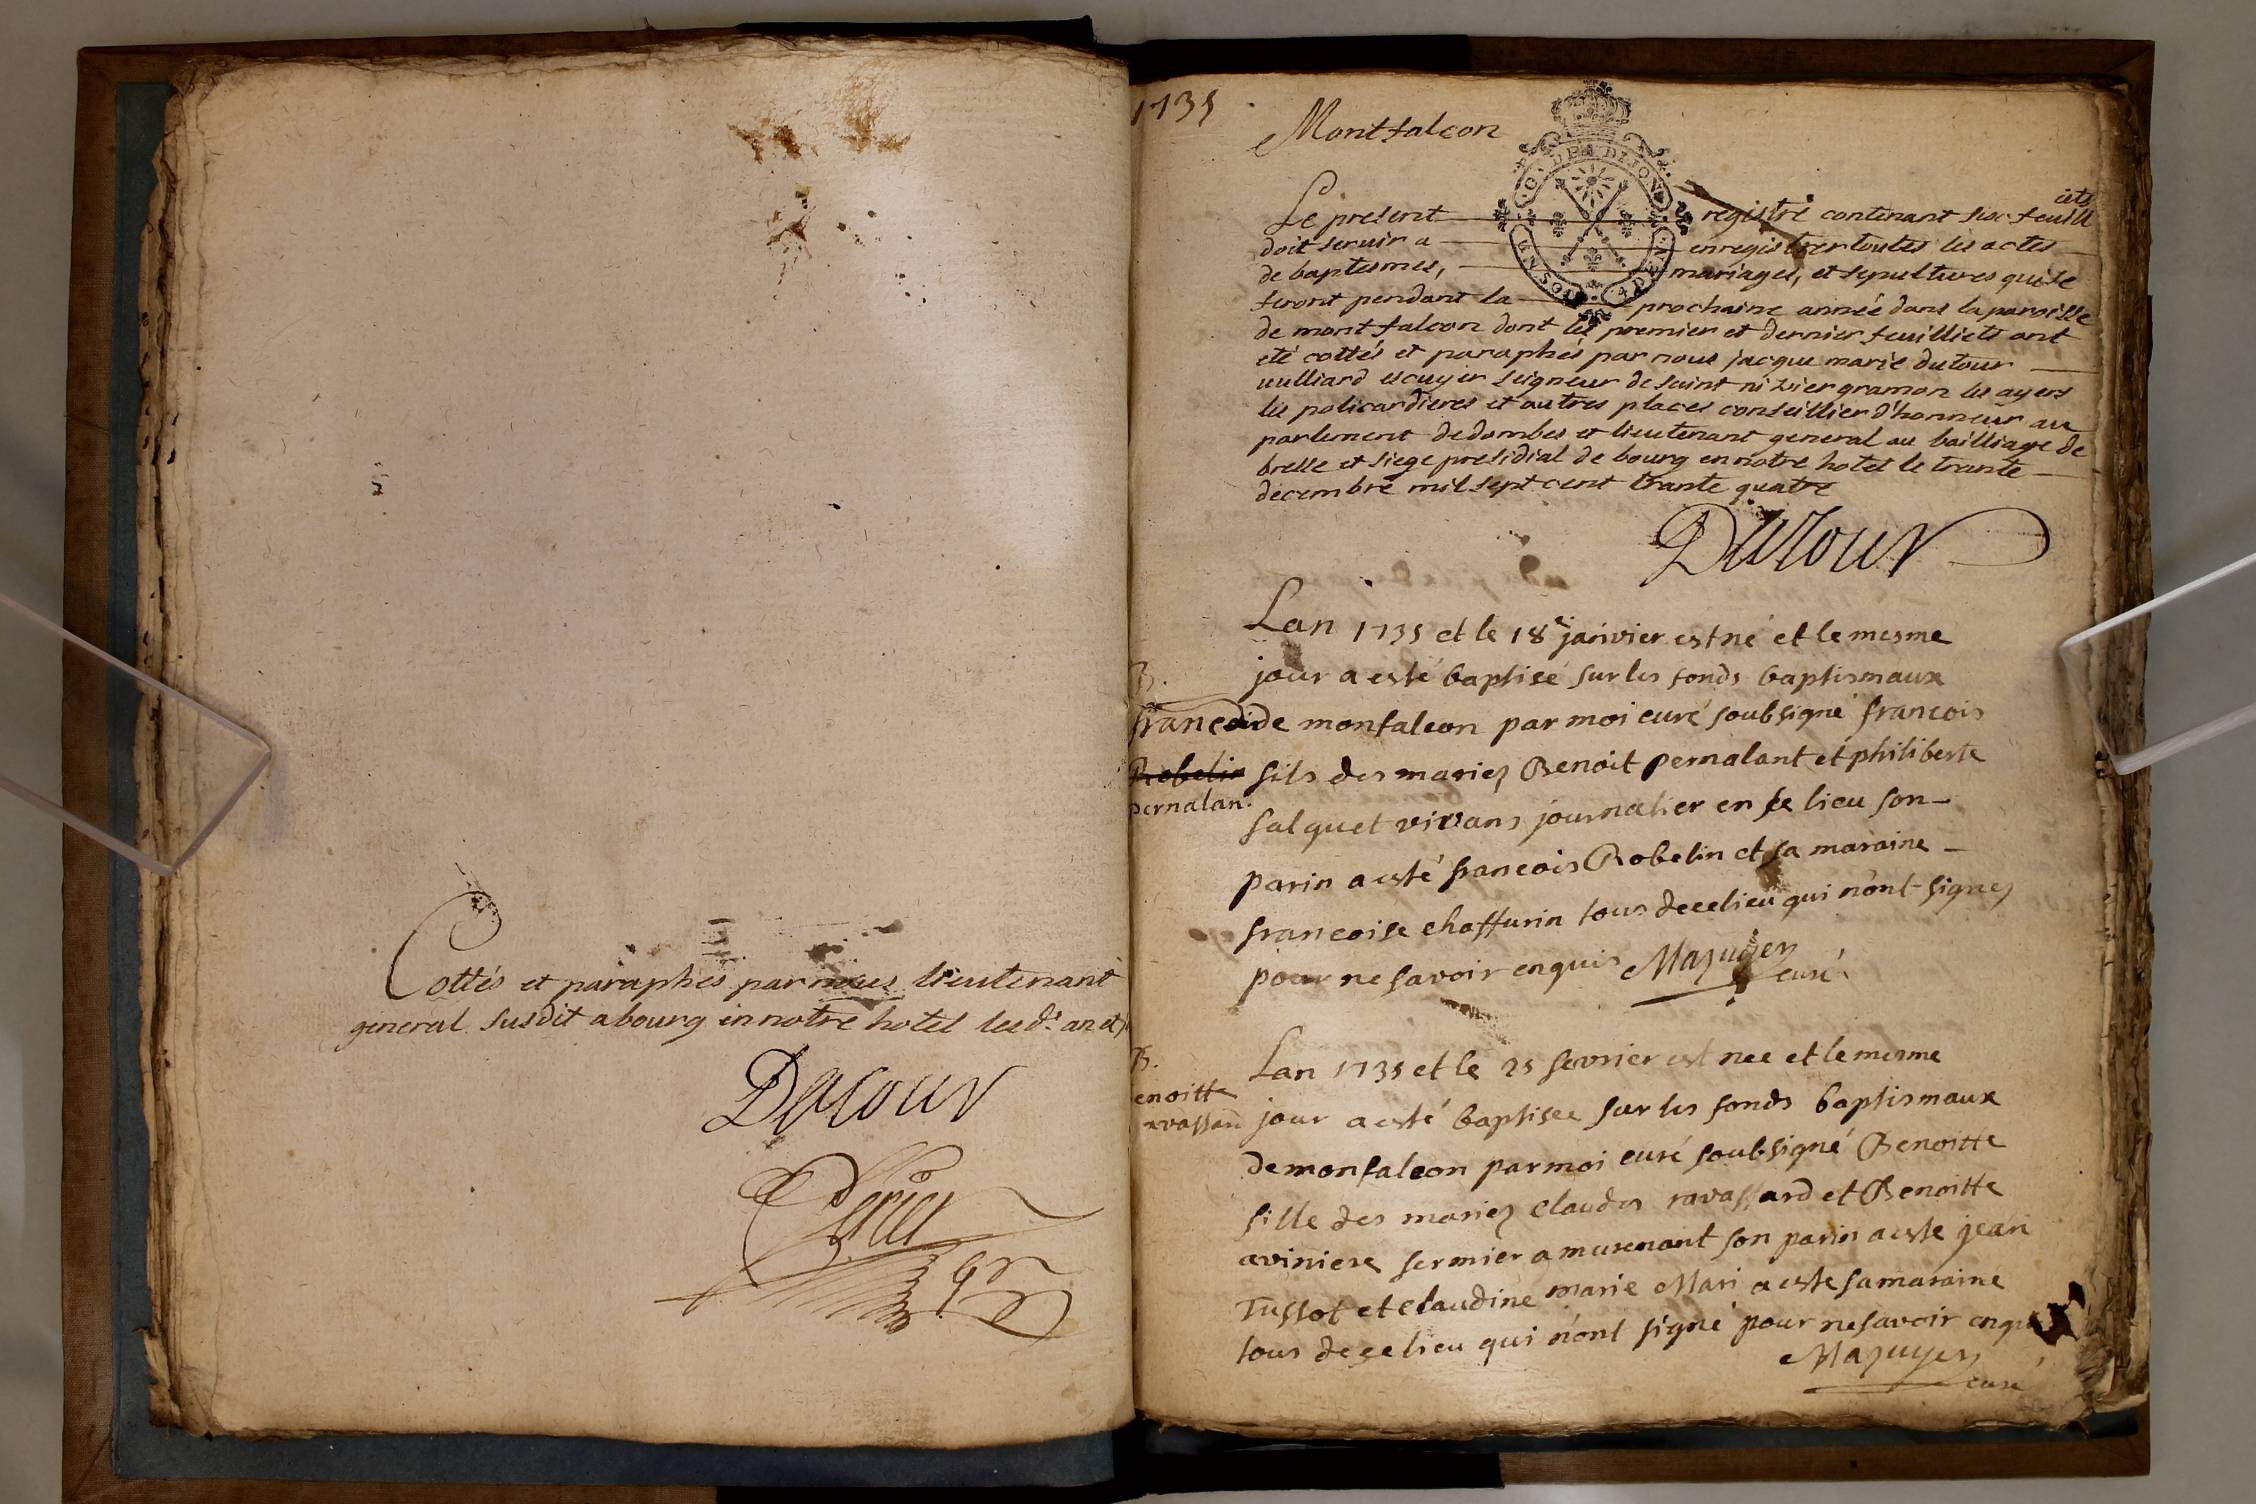 Cottés et paraphés par nous lieutenant
general susdit a bourg en notre hotel lesd. an et
Dutour
1735
Montfalcon
G. DE DIJON
DEN.
Le present registre contenant six feuill
iets
doit servir a enregistrer toutes les actes
de baptesmes, mariages, et sepultures qui se
feront pendant la prochaine année dans la paroisse
de montfalcon dont les premier et dernier feuilliets ont
eté cottés et paraphés par nous jacque marie dutour
vulliard escuyer seigneur de saint nizier gramon les ayers
les policardieres et autres places conseillier d'honneur au
parlement de dombes et lieutenant general au bailliage de
bresse et siege presidial de bourg en notre hotel le trante
decembre mil sept cent trante quatre
Dutour
Lan 1735 et le 18e janvier est né et le mesme
B. jour a esté baptisé sur les fonds baptismaux
francoi de monfalcon par moi curé soubsigné francois
Robelin fils des mariez Benoit pernalant et philiberte
pernalan.
salquet vivans journalier en ce lieu son
parin a esté francois Robelin et sa maraine
francoise chaffurin tous de ce lieu qui n'ont signez
pour ne savoir enquis Mazuyer
curé
B. Lan 1735 et le 25 fevrier est nee et le mesme
enoitte
avassard jour a esté baptisee sur les fonds baptismaux
de monfalcon par moi curé soubsigné Benoitte
fille des mariez claudes ravassard et Benoitte
aviniere fermier a murenant son parin a este jean
Tussot et claudine marie Mari a este sa maraine
tous de ce lieu qui n'ont signé pour ne savoir enqu
Mazuyer
curé